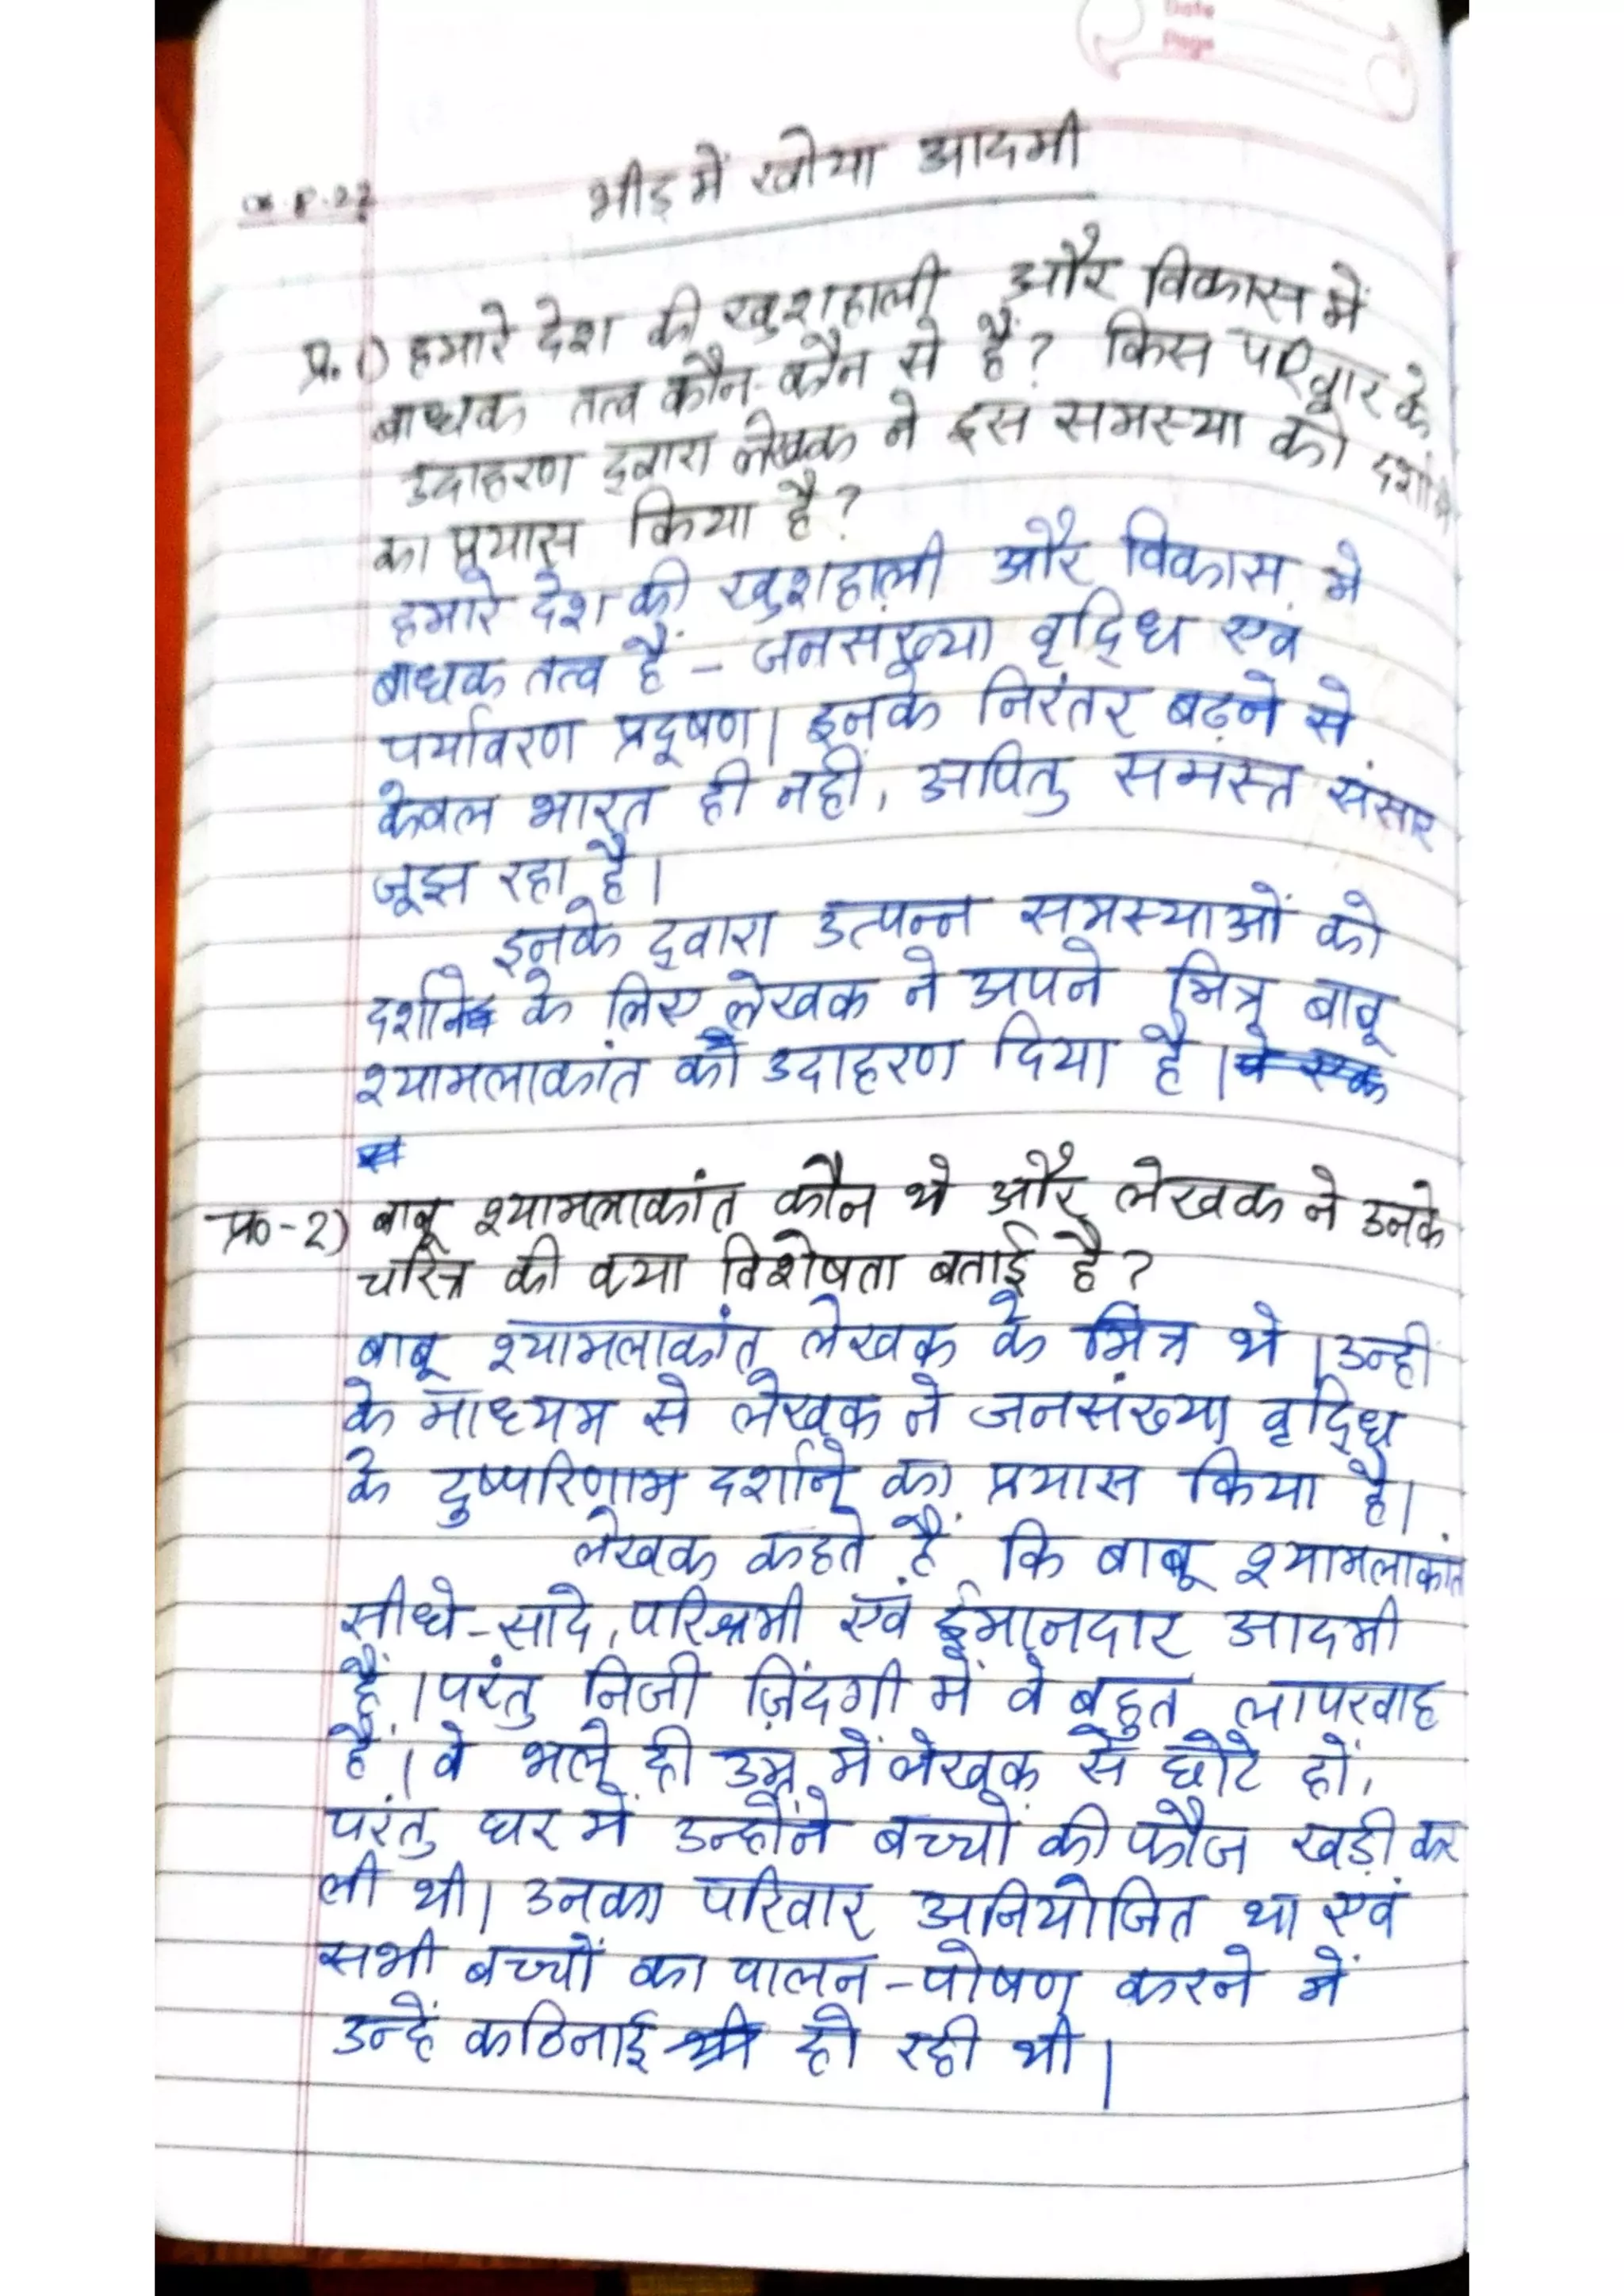 Date
Page
भीड़ में खोया आदमी
प्र. 1) हमारे देश की खुशहाली और विकास में
बाधक तत्व कौन-कौन से हैं? किस परिवार के
उदाहरण द्वारा लेखक ने इस समस्या को
का प्रयास किया है?
हमारे देश की खुशहाली और विकास में
बाधक तत्व हैं - जनसंख्या वृद्धि एवं
पर्यावरण प्रदूषण। इनके निरंतर बढ़ने से
केवल भारत ही नहीं, अपितु समस्त संसार
जूझ रहा है।
इनके द्वारा उत्पन्न समस्याओं को
दर्शाने के लिए लेखक ने अपने मित्र बाबू
श्यामलाकांत का उदाहरण दिया है।
प्र०-2) बाबू श्यामलाकांत कौन थे और लेखक ने उनके
चरित्र की क्या विशेषता बताई है?
बाबू श्यामलाकांत लेखक के मित्र थे। उन्हीं
के माध्यम से लेखक ने जनसंख्या वृद्धि
के दुष्परिणाम दर्शाने का प्रयास किया है।
लेखक कहते हैं कि बाबू श्यामलाकांत
सीधे-सादे, परिश्रमी एवं ईमानदार आदमी
हैं। परंतु निजी ज़िंदगी में वे बहुत लापरवाह
हैं। वे भले ही उम्र में लेखक से छोटे हों,
परंतु घर में उन्होंने बच्चों की फौज खड़ी कर
ली थी। उनका परिवार अनियोजित था एवं
सभी बच्चों का पालन-पोषण करने में
उन्हें कठिनाई हो रही थी।